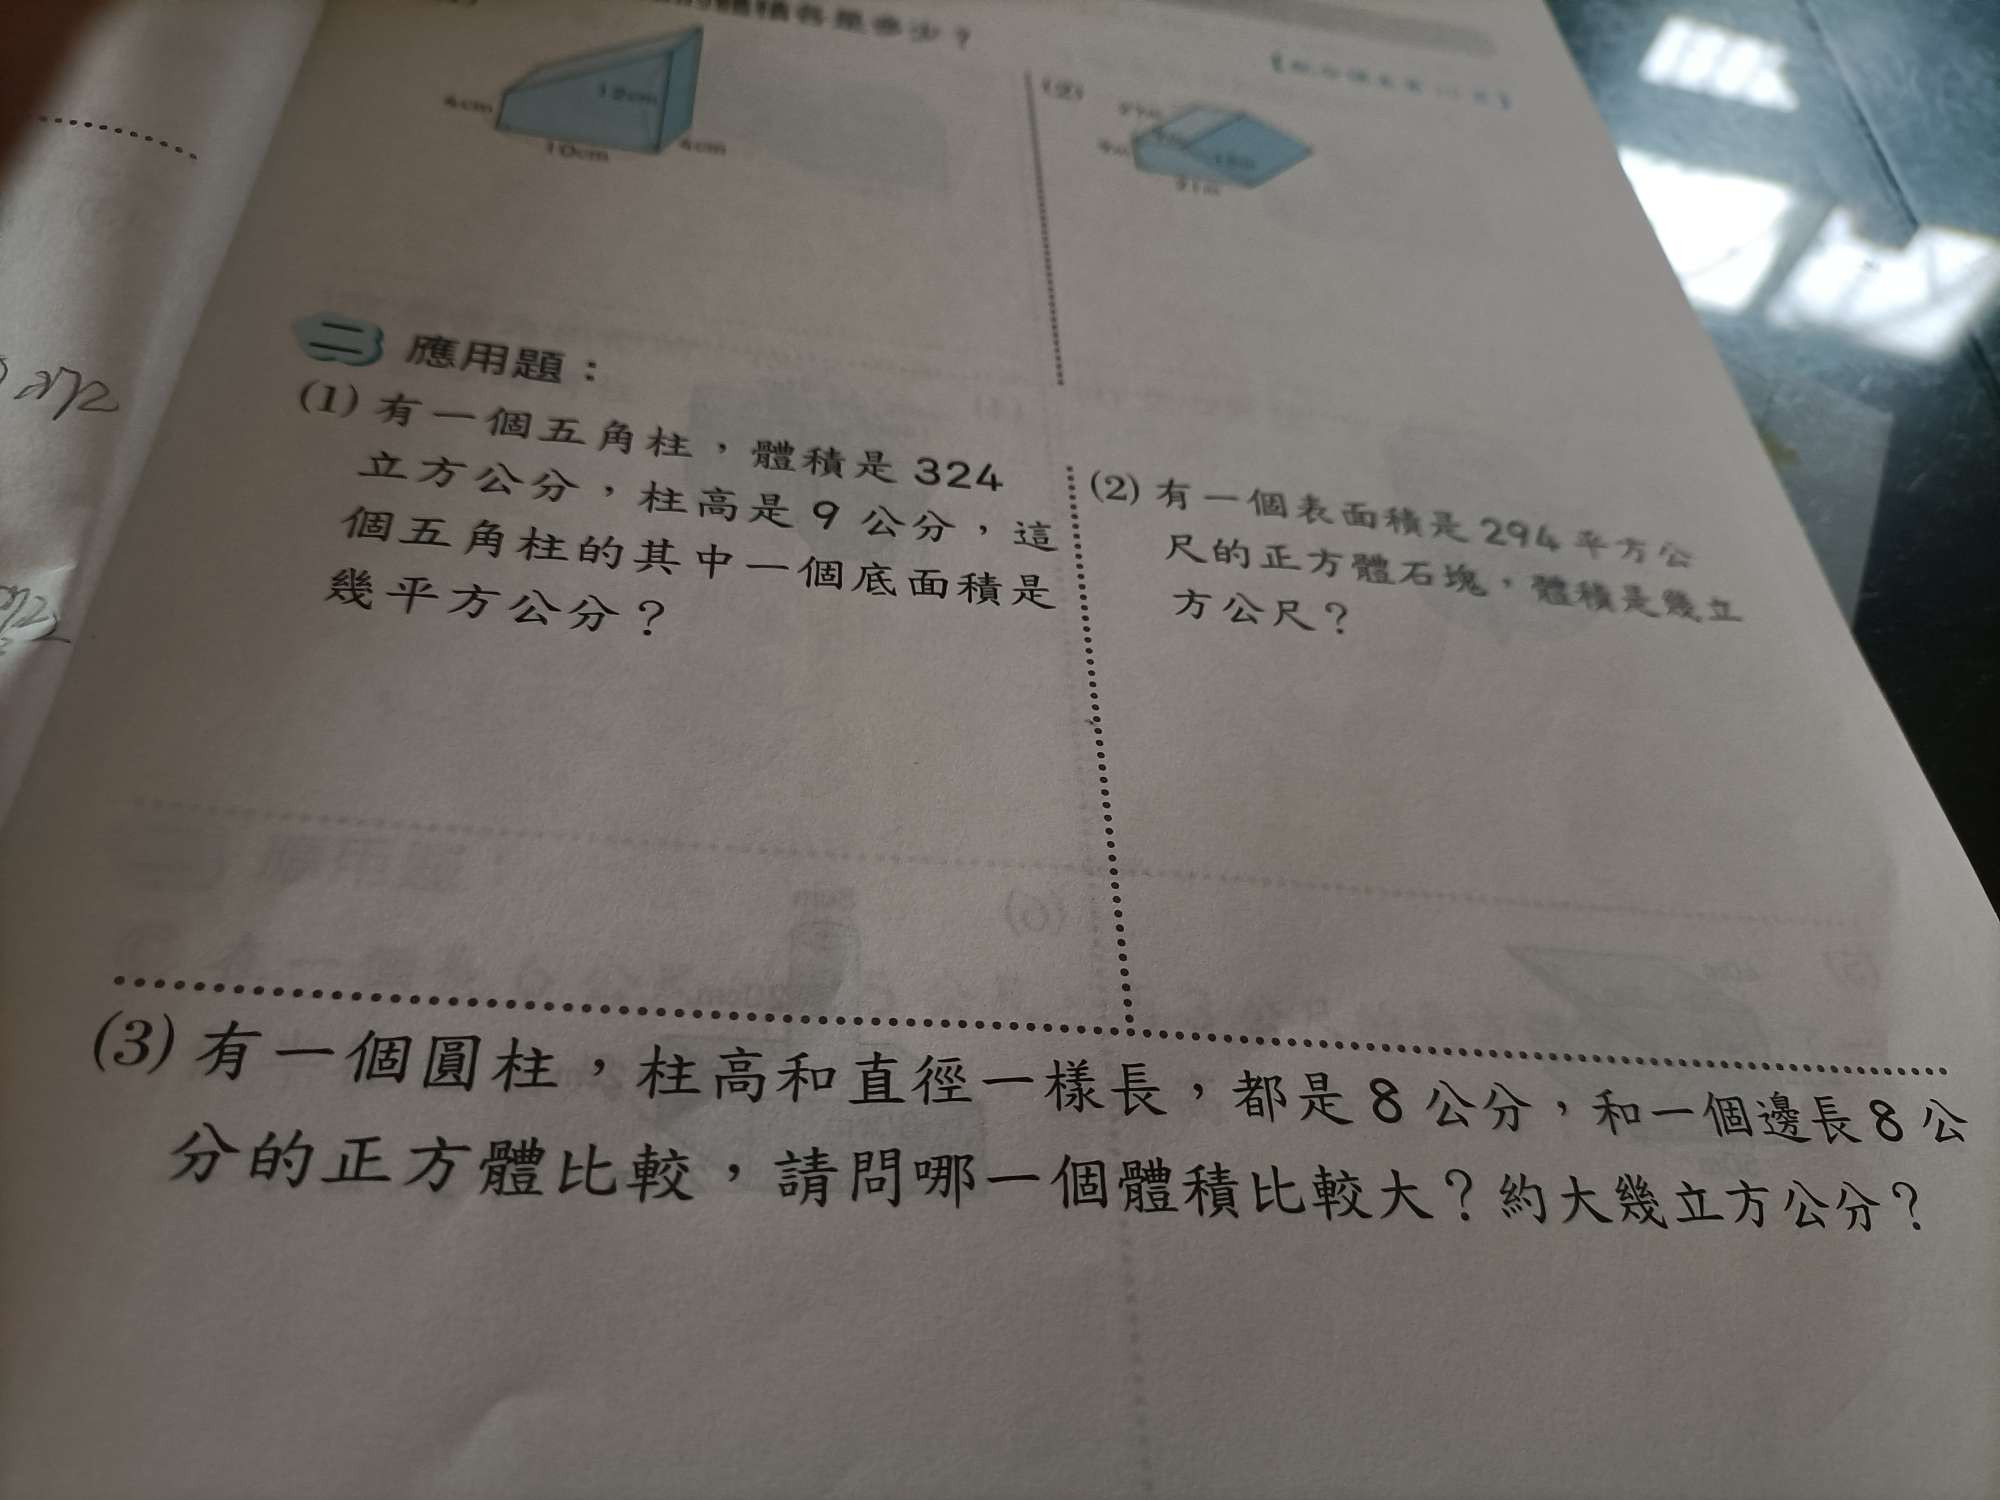 體積各是多少？
4cm
12cm
10cm
4cm
(2)
二 應用題：
(1) 有一個五角柱，體積是 324
立方公分，柱高是 9 公分，這
個五角柱的其中一個底面積是
幾平方公分？
(2) 有一個表面積是 294 平方公
尺的正方體石塊，體積是幾立
方公尺？
(3) 有一個圓柱，柱高和直徑一樣長，都是 8 公分，和一個邊長 8 公
分的正方體比較，請問哪一個體積比較大？約大幾立方公分？